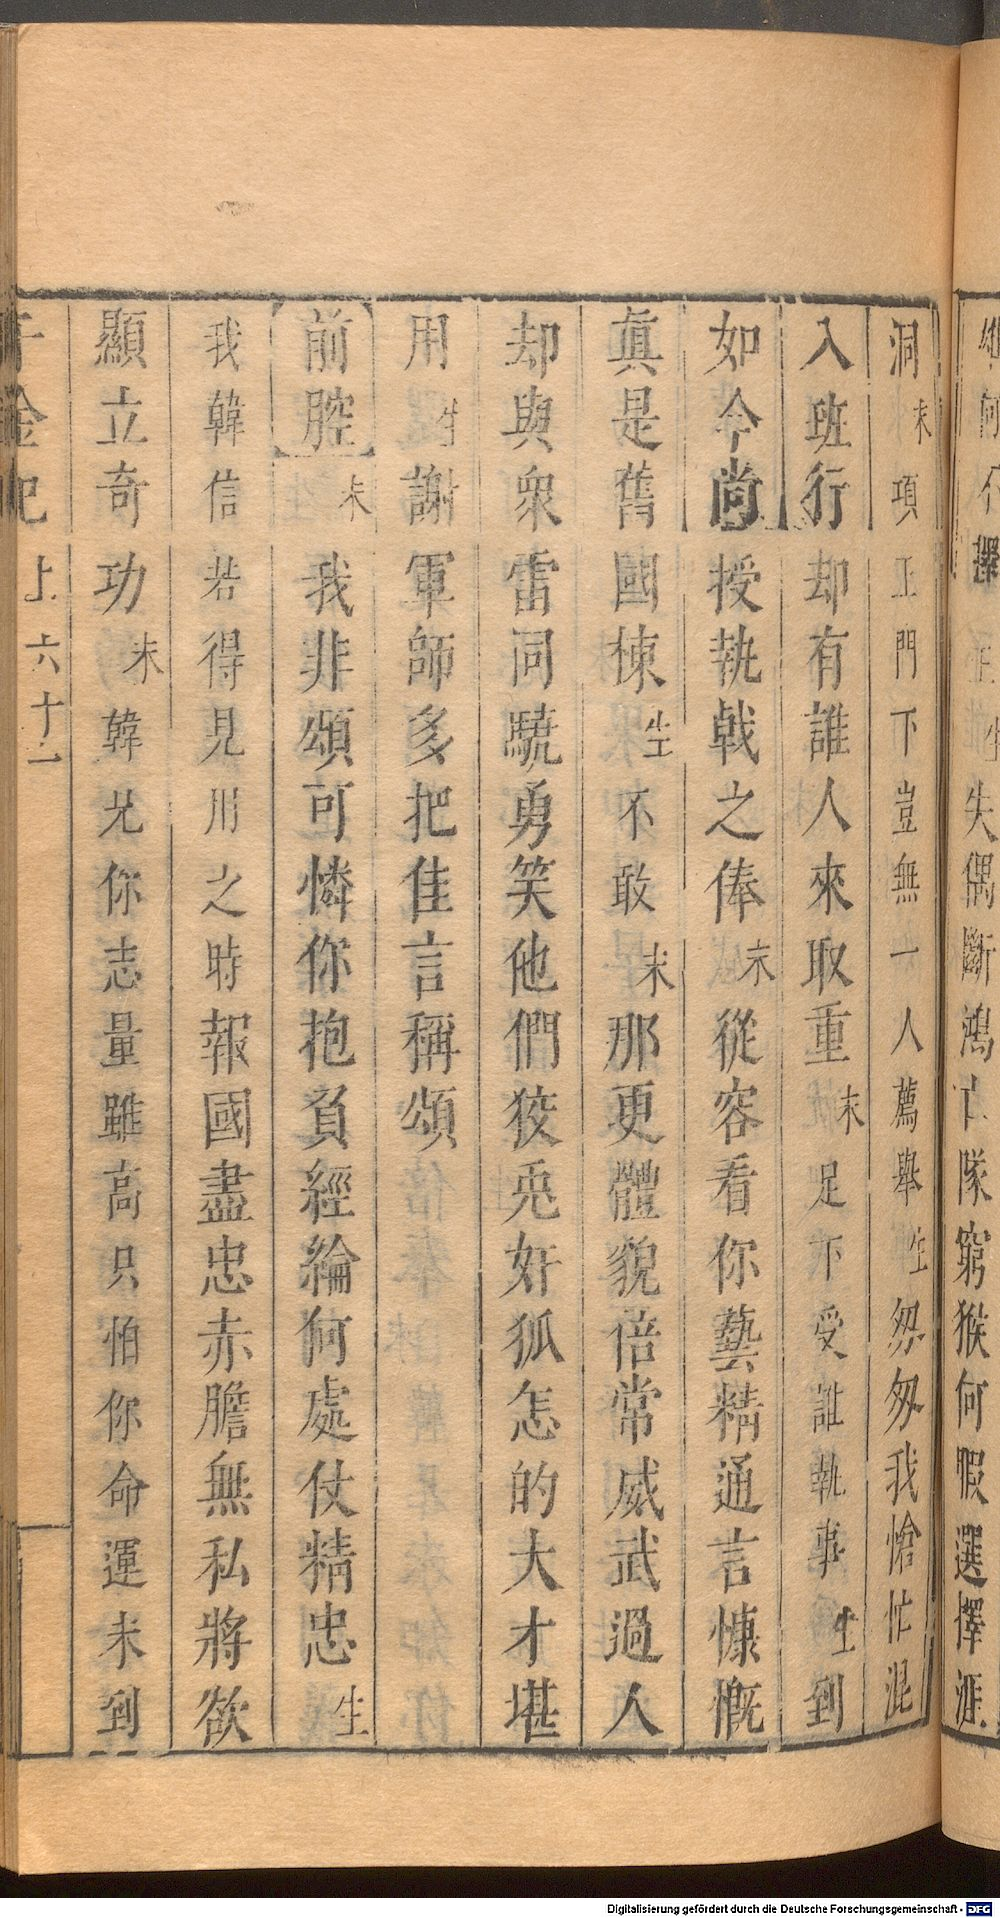 失偶斷鴻亡隊窮猴何暇選擇涯
洞末項王門下豈無一人薦舉生匆匆我愴忙混
入班行却有誰人來取重末足下受誰執事生到
如今尚授執戟之俸末從容看你藝精通言慷慨
眞是舊國棟生不敢末那更體貌倍常威武過人
却與衆雷同驍勇笑他們狡兎奸狐怎的大才堪
用生謝軍師多把佳言稱頌
前腔末我非頌可憐你抱負經綸何處仗精忠生
我韓信若得見用之時報國盡忠赤膽無私將欲
顯立奇功末韓兄你志量雖高只怕你命運未到
千金記 上 六十一
Digitalisierung gefördert durch die Deutsche Forschungsgemeinschaft - DFG